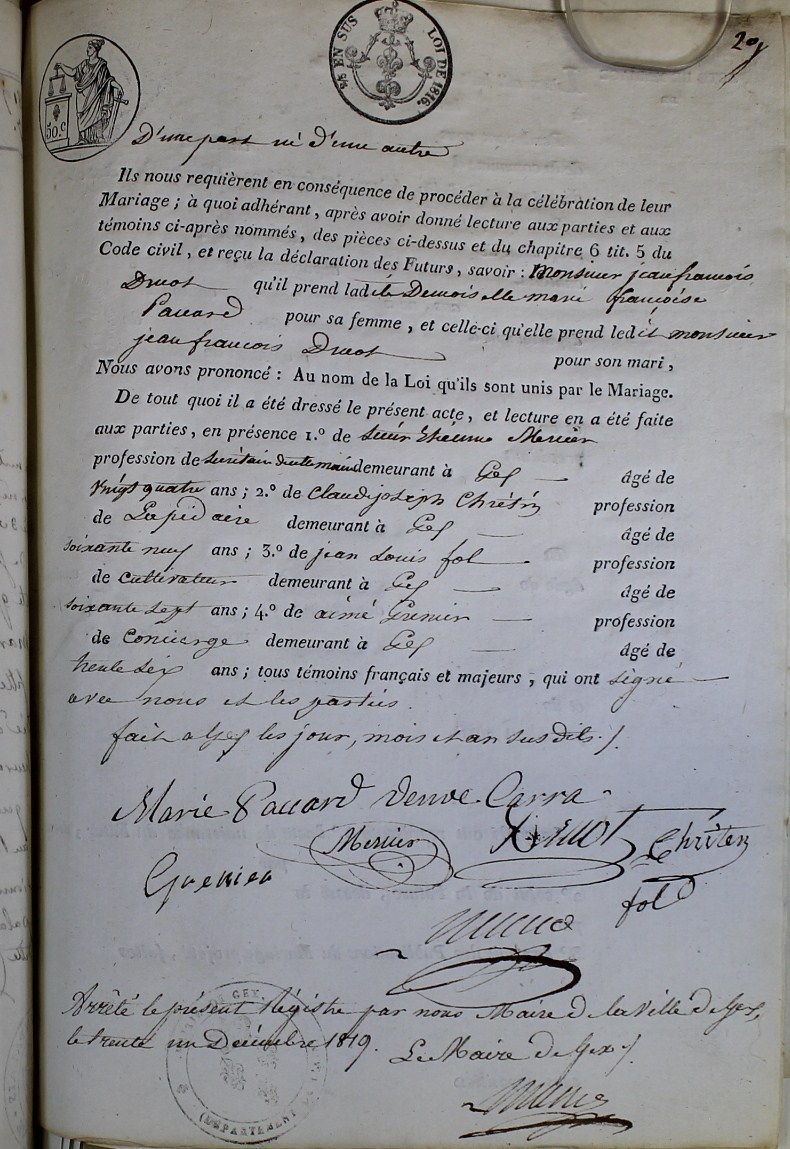 ¾ EN SUS LOI DE 1816.
50.c
29
D'une part ni d'une autre
Ils nous requièrent en conséquence de procéder à la célébration de leur
Mariage ; à quoi adhérant, après avoir donné lecture aux parties et aux
témoins ci-après nommés, des pièces ci-dessus et du chapitre 6 tit. 5 du
Code civil, et reçu la déclaration des Futurs, savoir : Monsieur jean françois
Druot qu'il prend ladite Demoiselle marie françoise
Paccard pour sa femme, et celle-ci qu'elle prend ledit monsieur
jean francois Druot pour son mari,
Nous avons prononcé : Au nom de la Loi qu'ils sont unis par le Mariage.
De tout quoi il a été dressé le présent acte, et lecture en a été faite
aux parties, en présence 1.º de sieur Etienne Mercier
profession de demeurant à Gex âgé de
vingt quatre ans ; 2.º de Claud joseph Chrétin profession
de Lapidaire demeurant à Gex âgé de
soixante neuf ans ; 3.º de jean Louis fol profession
de cultivateur demeurant à Gex âgé de
soixante sept ans ; 4.º de aimé Grenier profession
de Concierge demeurant à Gex âgé de
trente six ans ; tous témoins français et majeurs, qui ont signé
avec nous et les parties.
fait a Gex les jour, mois et an susdits ./
Marie Paccard veuve Carra
Mercier Druot Chréten
Grenier fol
Arrêté le présent Régistre par nous Maire de la Ville de Gex,
le trente un Décembre 1819. Le Maire de Gex ./
GEX
(DEPARTEMENT